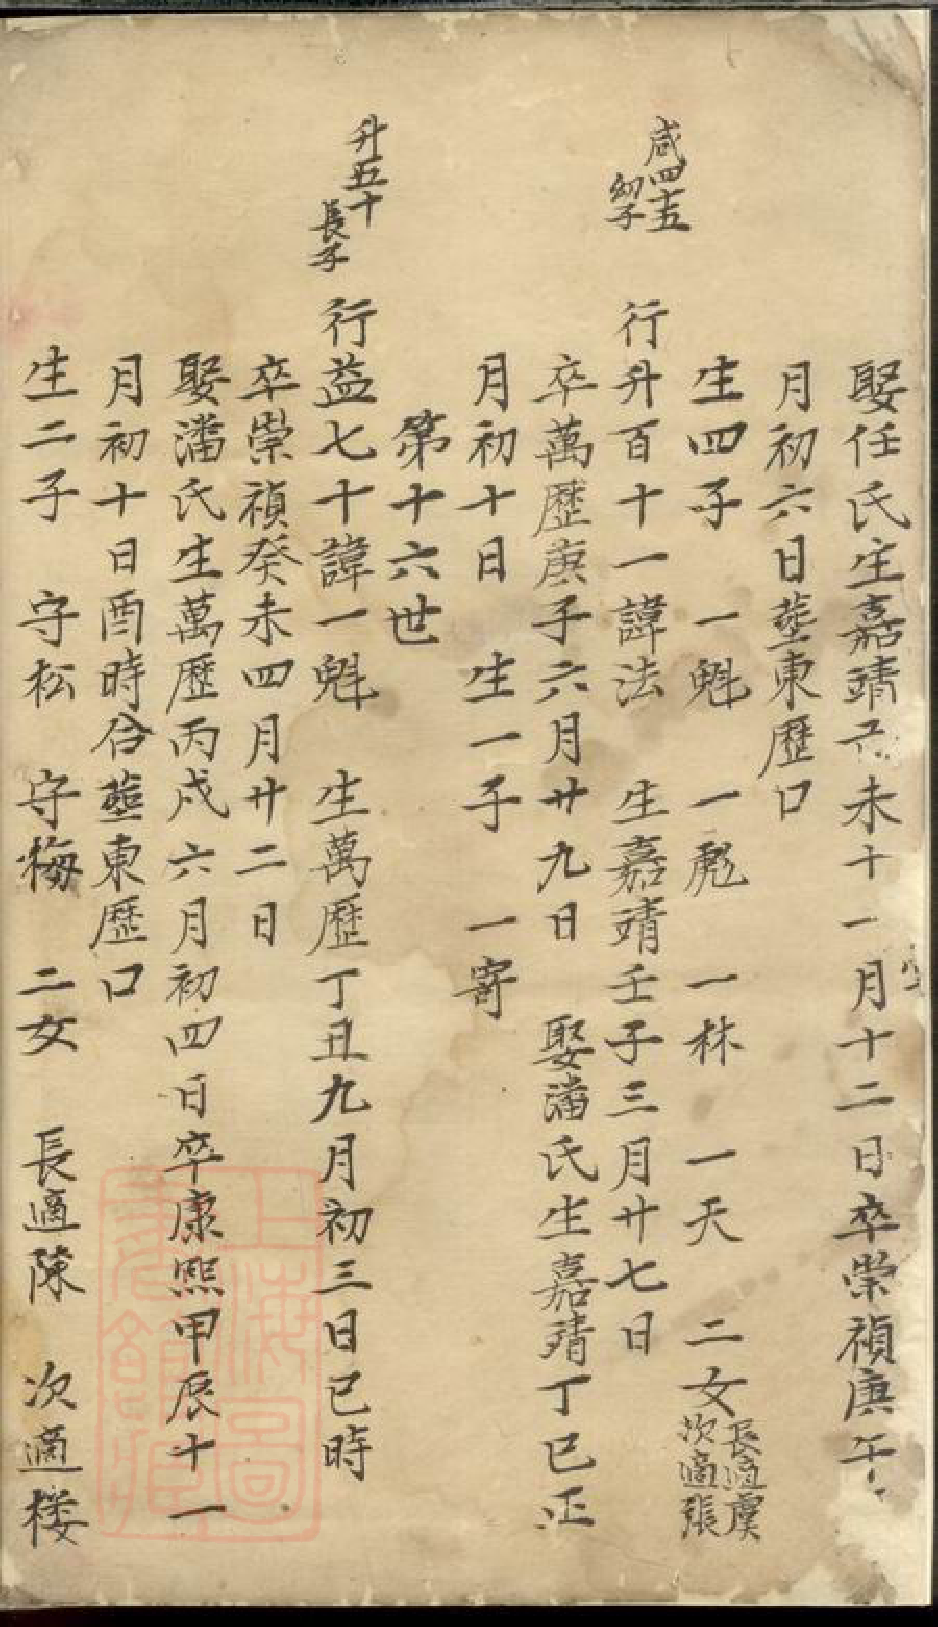 娶任氏生嘉靖己未十一月十二日卒崇禎庚午
月初六日塟東歷口
生四子　一魁　一彪　一林　一天　二女
長適虞
次適張
咸四十五
幼子
行升百十一諱法　生嘉靖壬子三月廿七日
卒萬歷庚子六月廿九日　娶潘氏生嘉靖丁巳正
月初十日　生一子　一寄
第十六世
升五十
長子
行益七十諱一魁　生萬歷丁丑九月初三日巳時
卒崇禎癸未四月廿二日
娶潘氏生萬歷丙戍六月初四日卒康熙甲辰十一
月初十日酉時合塟東歷口
生二子　守松　守梅　二女　長適陳　次適楼
上海圖
書館藏